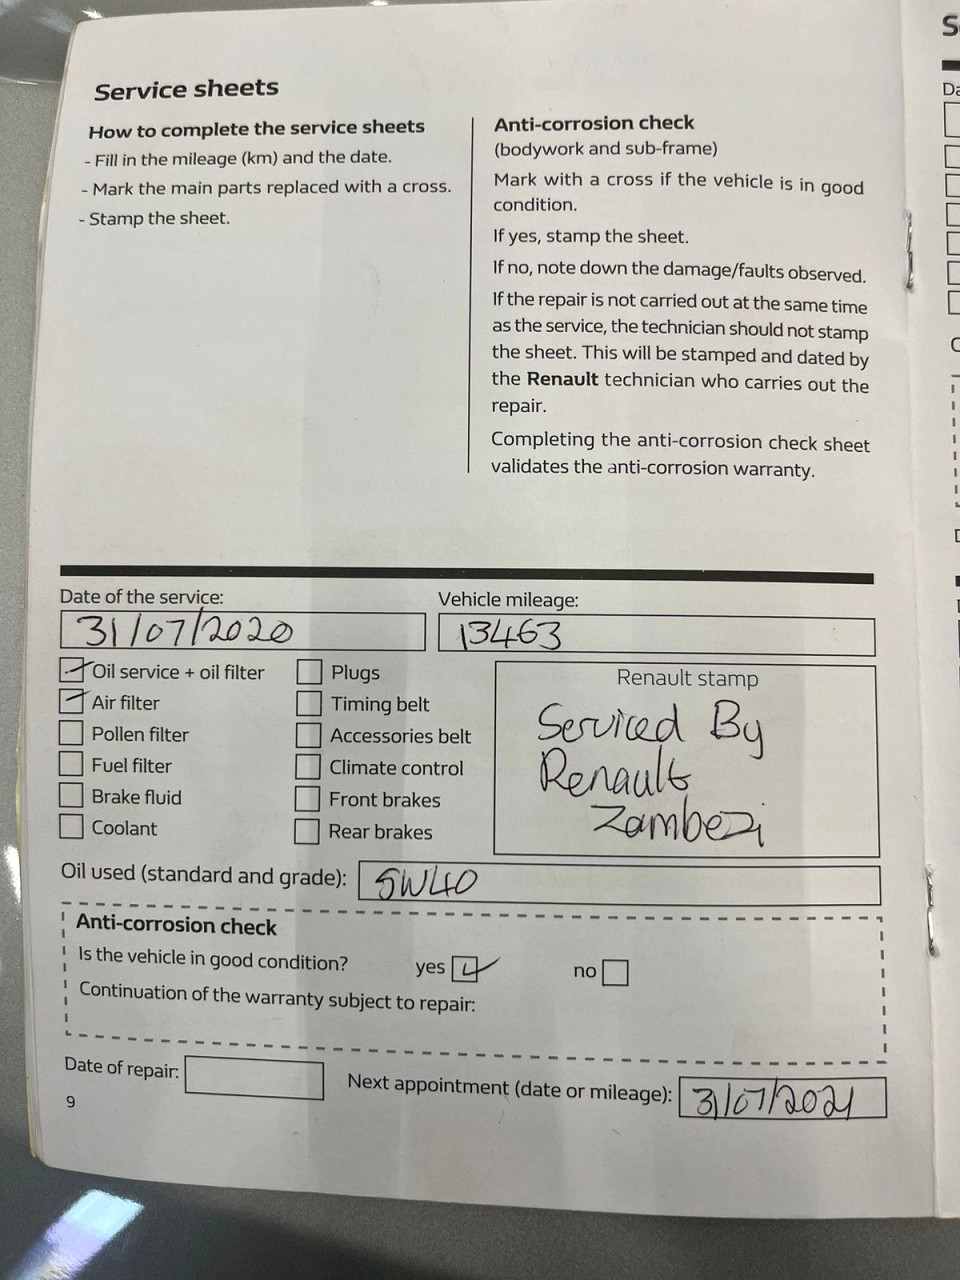 Service sheets
How to complete the service sheets
- Fill in the mileage (km) and the date.
- Mark the main parts replaced with a cross.
- Stamp the sheet.
Anti-corrosion check
(bodywork and sub-frame)
Mark with a cross if the vehicle is in good
condition.
If yes, stamp the sheet.
If no, note down the damage/faults observed.
If the repair is not carried out at the same time
as the service, the technician should not stamp
the sheet. This will be stamped and dated by
the Renault technician who carries out the
repair.
Completing the anti-corrosion check sheet
validates the anti-corrosion warranty.
Date of the service:
31/07/2020
Vehicle mileage:
13463
Oil service + oil filter
Air filter
Pollen filter
Fuel filter
Brake fluid
Coolant
Plugs
Timing belt
Accessories belt
Climate control
Front brakes
Rear brakes
Renault stamp
Serviced By
Renault
Zambezi
Oil used (standard and grade): 5W40
Anti-corrosion check
Is the vehicle in good condition? yes no
Continuation of the warranty subject to repair:
Date of repair:
Next appointment (date or mileage): 31/07/2021
9